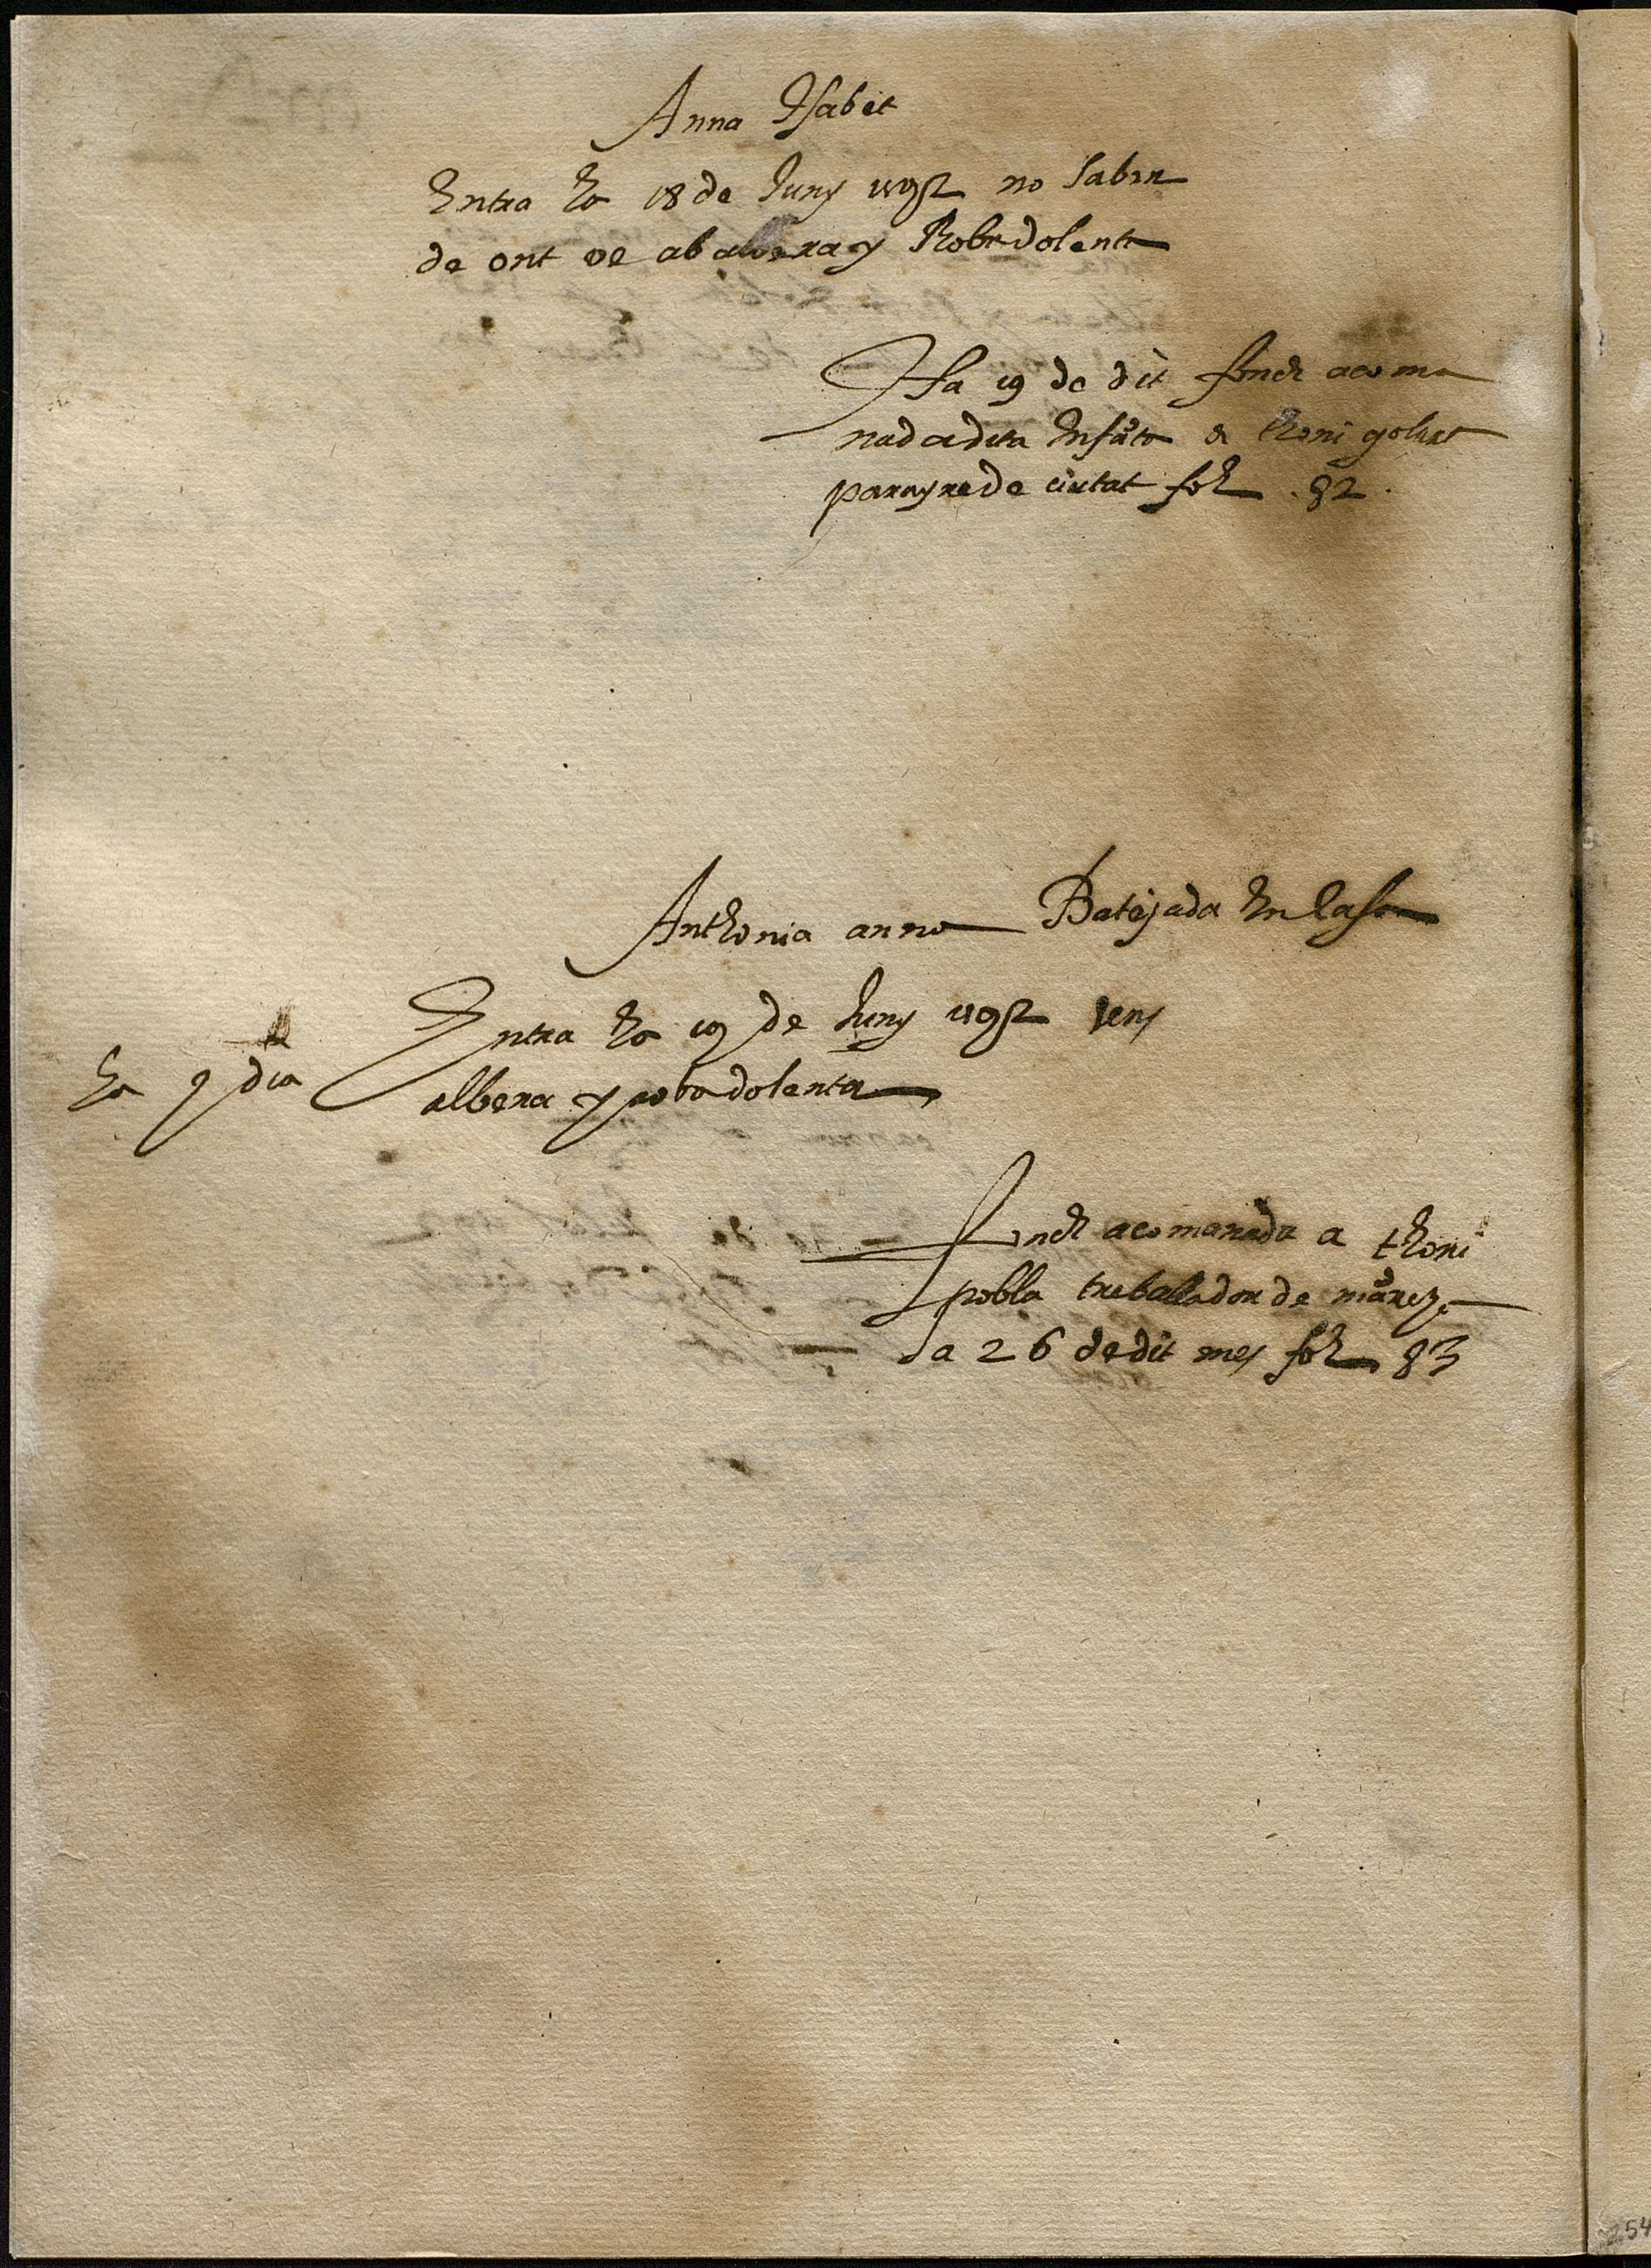 Anna Isabet
Entra ha 18 de Juny 1592 no sabem
de ont ve ab albera y Roba dolenta
Ha 19 de dit fonch acoma
nada dita Infāta a thoni
parayre de ciutat fol. 82.
Anthonia anna Batejada En casa
Entra ha 19 de Juny 1592 sens
albera y roba dolenta
ha 9 dia
fonch acomanada a thoni
pobla treballador de
a 26 de dit mes fol. 83
254